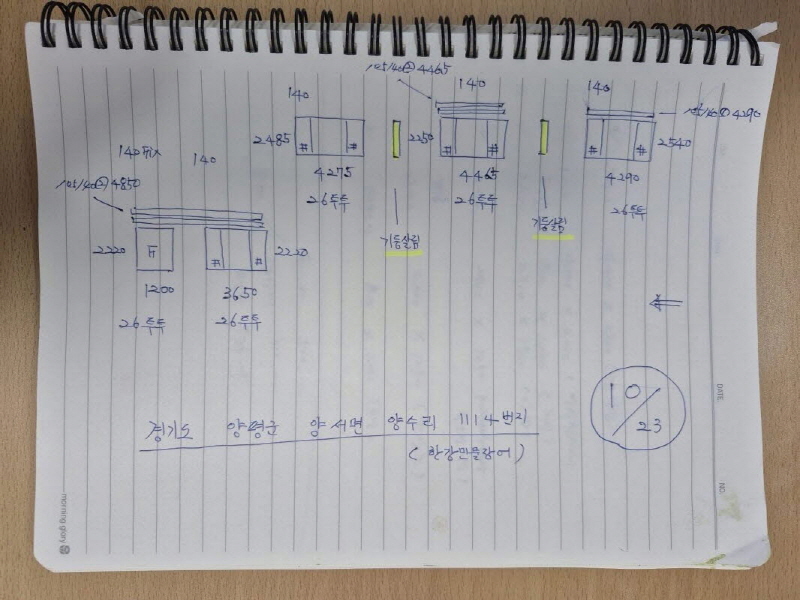 140
2485
4275
26투투
105/40② 4465
140
2250
4465
26투투
140
105/40① 4290
2540
4290
26투투
기둥살림
기둥살림
140 Fix
140
105/40② 4850
2220
F
2220
1200
3650
26투투
26투투
경기도 양평군 양서면 양수리 1114번지
(한강민물장어)
10/23
DATE
NO.
morning glory